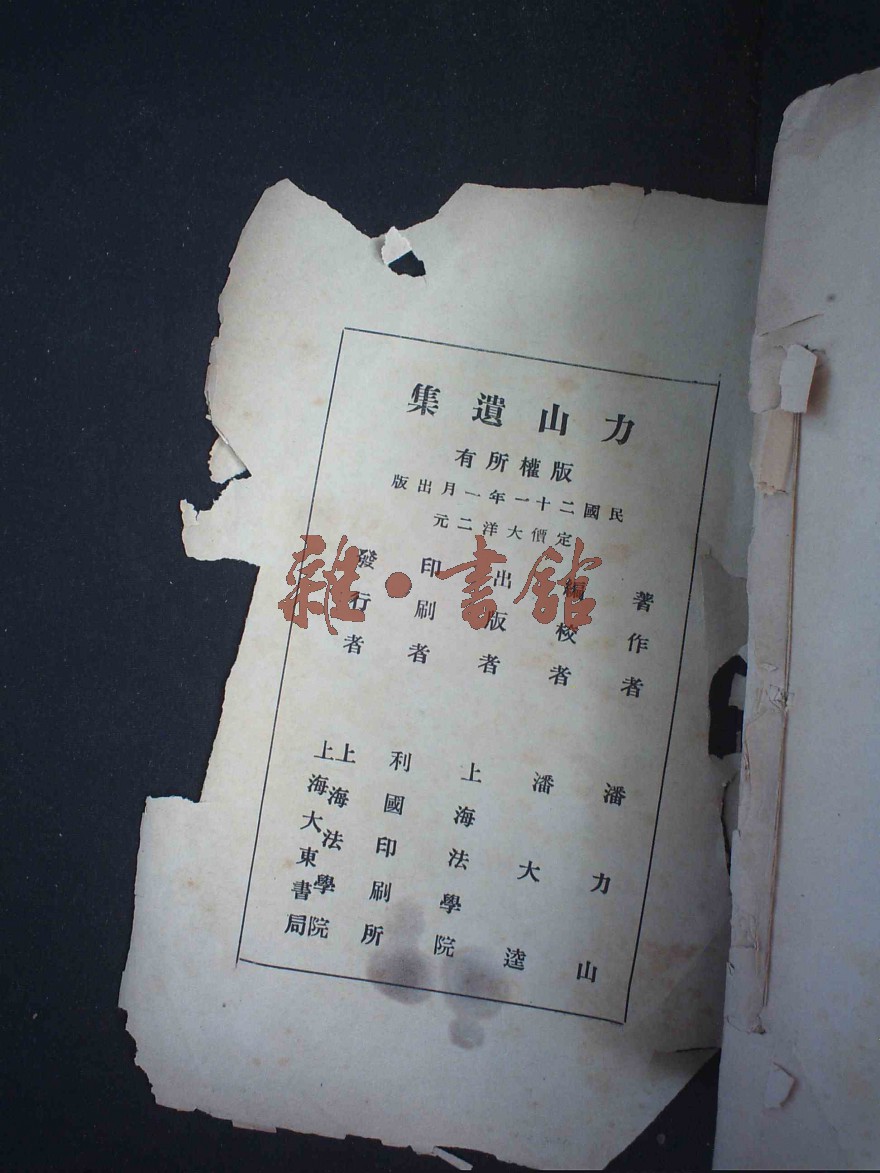 力山遺集
版權所有
民國二十一年一月出版
定價大洋二元
著作者 潘力山
編校者 潘大逵
出版者 上海法學院
印刷者 利國印刷所
發行者 上海法學院
上海大東書局
雜·書館